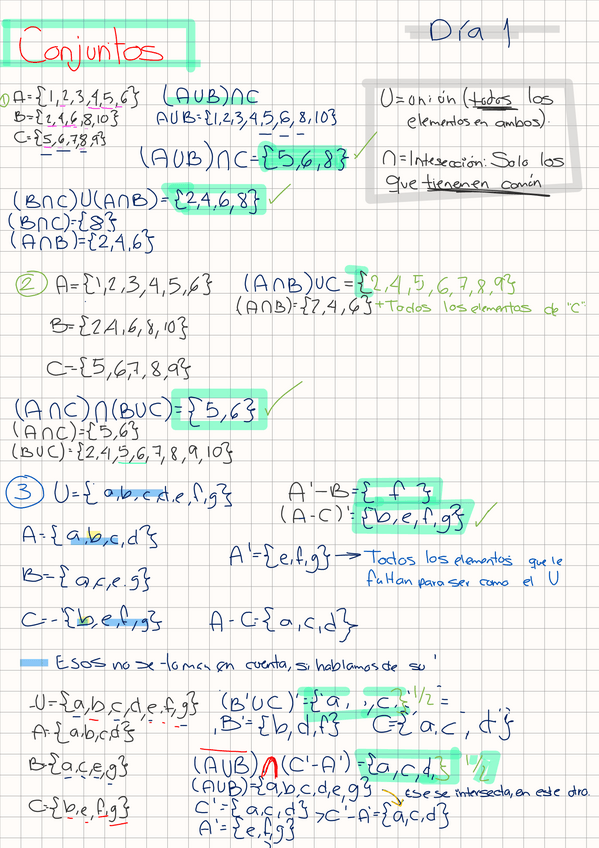 Conjuntos
Día 1
① A={1,2,3,4,5,6}
B={2,4,6,8,10}
C={5,6,7,8,9}
(A∪B)∩C
A∪B={1,2,3,4,5,6,8,10}
(A∪B)∩C={5,6,8} ✓
U=unión (todos los
elementos en ambos).
∩=Intesección: Solo los
que tienen en común
(B∩C)∪(A∩B)={2,4,6,8} ✓
(B∩C)={8}
(A∩B)={2,4,6}
② A={1,2,3,4,5,6}
B={2,4,6,8,10}
C={5,6,7,8,9}
(A∩B)∪C={2,4,5,6,7,8,9}
(A∩B)={2,4,6}+Todos los elementos de "C"
(A∩C)∩(B∪C)={5,6} ✓
(A∩C)={5,6}
(B∪C)={2,4,5,6,7,8,9,10}
③ U={a,b,c,d,e,f,g}
A={a,b,c,d}
B={a,c,e,g}
C={b,e,f,g}
A'-B={ f }
(A-C)'={b,e,f,g} ✓
A'={e,f,g} → Todos los elementos que le
faltan para ser como el U
A-C={a,c,d}
Esos no se toman en cuenta, si hablamos de su '
U={a,b,c,d,e,f,g}
A={a,b,c,d}
B={a,c,e,g}
C={b,e,f,g}
(B'∪C)'={a, ,c,} 1/2 =
B'={b,d,f} C={a,c, d'}
(A∪B)∩(C'-A')={a,c,d,} 1/2
(A∪B)={a,b,c,d,e,g}
ese se intersecta, en este
C'={a,c,d} > C'-A'={a,c,d}
A'={e,f,g}